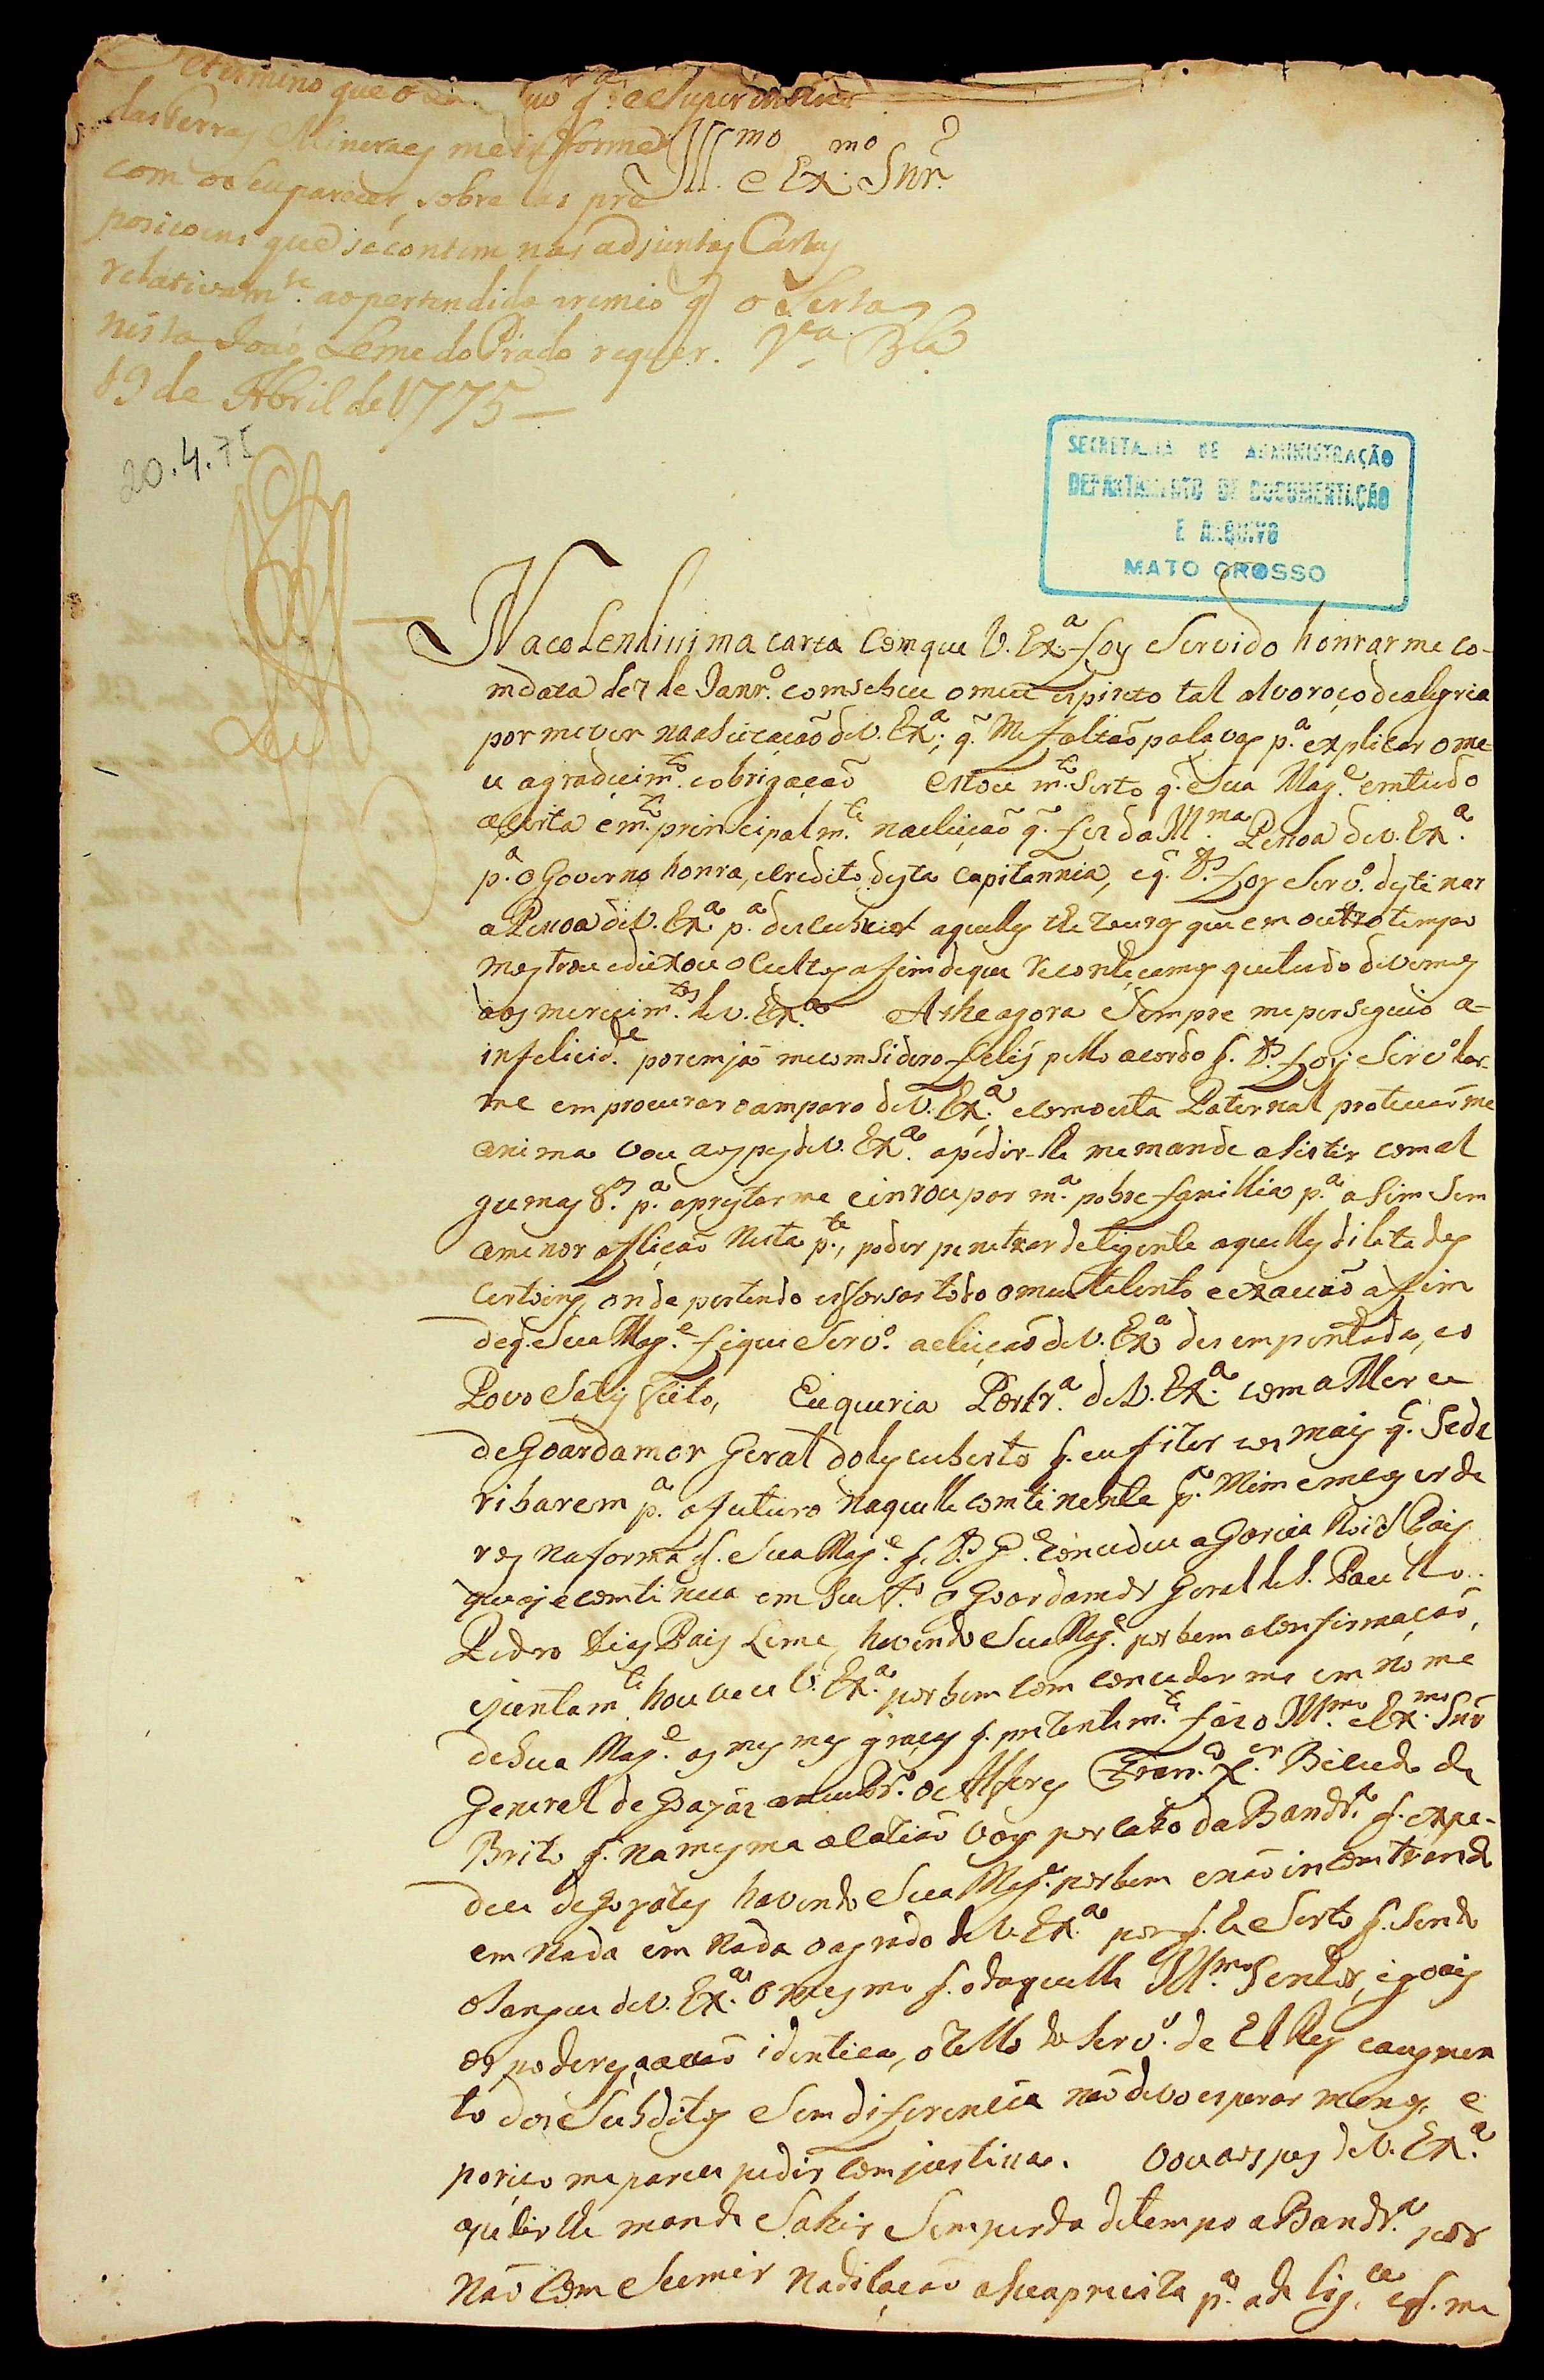 Determino que o
das Terras Mineraes me informe
com o seu parecer, sobre las pro
posicoens que se contem nas adjuntas Cartas
relativam.te ao pertendido premio q̃ o Serta
nista Joaõ Leme do Prado requer. V.a B.la
19 de Abril de 1775
20.4.75
Ill.mo e Ex.mo Snr.
SECRETARIA DE ADMINISTRAÇÃO
DEPARTAMENTO DE DOCUMENTAÇÃO
E ARQUIVO
MATO GROSSO
Na colendissima carta com que V. Ex.a foy Servido honrarme co-
m data de 7 de Janr.o comsebeu o meu espirito tal alvoroço de alegria
por me ver na aseitacaõ de V. Ex.a; q̃ Me faltaõ palavas p.a explicar o me-
u agradicim.to e obrigacaõ Estou m.to Serto q̃ Sua Mag.e em tudo
aserta e m.to principalm.te na eleiçaõ q̃ fes da Ill.ma Pesoa de V. Ex.a
p.a o Governo honra, e credito desta Capitannia, e q̃ D.s foy Serv.o destinar
a Pesoa de V. Ex.a p.a descubrir aquelles thezouros que em outro tempo
mostrou e deixou ocultos afim de que reconheçamos que tudo devemos
aos mericim.tos de V. Ex.a Athe agora Sempre me perseguio a-
infelicid.e porem ja me comsidero felis pello acordo q̃ D.s foy Serv.o dar-
me em procurar o amparo de V. Ex.a, e como esta Paternal proteçaõ me
anima vou aos pes de V. Ex.a a pedir-lhe me mande asistir com al
gumas 8.as p.a aprestarme e inrou par m.a pobre familia p.a asim Sem
a menor afliçaõ Nesta p.te, poder penetrar deligente aquelles dilatados
Certoens, onde pertendo esforsar todo o meu talento e exacaõ a fim
de q. Sua Mag.e fique Serv.o a eleiçaõ de V. Ex.a desempenhada, e o
Povo Satisfeito, Eu queria Portr.a de V. Ex.a com a Merce
de Goardamor Geral do descuberto q. eu fizer e os mais q. Se de
ribarem p.a o futuro naquelle comtinente p.a Mim e meus erde
ros na forma q. Sua Mag.e q. D.s G.e Comsedeu a Garcia Roiz Pais
que oje comtinua em Seu f.o o Goardamor Geral de S. Paullo
Pedro Dias Pais Leme, havendo Sua Mag.e por bem a Confirmaçaõ,
e juntam.te houvece V. Ex.a por bem com conceder me em nome
de Sua Mag.e as mesmas graças q. prezentem.te fas o Ill.mo e Ex.mo Snr
General de Goayás a meu Pr.o o Alferes Fran.co X.er Bicudo de
Brito q. na mesma alatiaõ voy por cabo da Bandr.a q. expe-
deu de goyazes havendo Sua Mag.e por bem e naõ incomtrando
em Nada em Nada o agrado de V. Ex.a por q. he Serto q. Sendo
o Sangue de V. Ex.a o mesmo q. o daquelle Ill.mo Senhor, e goais
os poderes, a acaõ identica, o zello do Serv.o de El Rey e augmen
to dos Subditos Sem diferencia naõ devo esperar menos, e
por iso me parece pedir com justissa. Vou aos pes de V. Ex.a
a pedirlhe mande Sahir Sem perda de tempo a Bandr.a por
Naõ Comsumir Na dilacaõ a Sua presista p.a a delig.ca e q. me